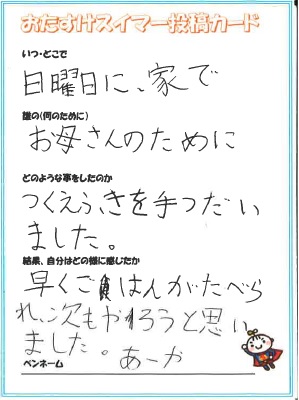 おたすけスイマー投稿カード
いつ・どこで
日曜日に、家で
誰の(何のために)
お母さんのために
どのような事をしたのか
つくえふきを手つだい
ました。
結果、自分はどの様に感じたか
早くごはんがたべら
れ、次もがんばろうと思い
ました。
あーか
ペンネーム